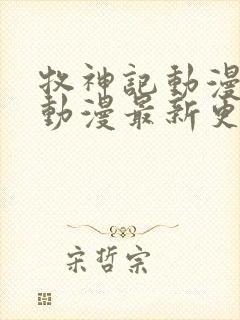 牧神記動漫
動漫最新更
宋哲宗